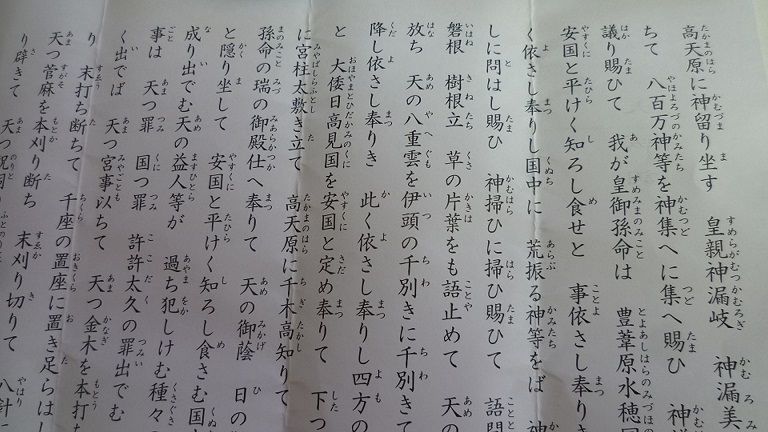 高天原に神留り坐す　皇親神漏岐　神漏美
ちて　八百万神等を神集へに集へ賜ひ　神議
議り賜ひて　我が皇御孫命は　豊葦原水穂国
安国と平けく知ろし食せと　事依さし奉りき
く依さし奉りし国中に　荒振る神等をば　神
しに問はし賜ひ　神掃ひに掃ひ賜ひて　語問
磐根　樹根立　草の片葉をも語止めて　天の
放ち　天の八重雲を伊頭の千別きに千別きて
降し依さし奉りき　此く依さし奉りし四方の
と　大倭日高見国を安国と定め奉りて　下つ
に宮柱太敷き立て　高天原に千木高知りて
孫命の瑞の御殿仕へ奉りて　天の御蔭　日の
と隠り坐して　安国と平けく知ろし食さむ国
成り出でむ天の益人等が　過ち犯しけむ種々の
事は　天つ罪　国つ罪　許許太久の罪出でむ
く出でば　天つ宮事以ちて　天つ金木を本打ち
り　末打ち断ちて　千座の置座に置き足らはし
天つ菅麻を本刈り断ち　末刈り切りて　八針に
り辟きて　天つ祝